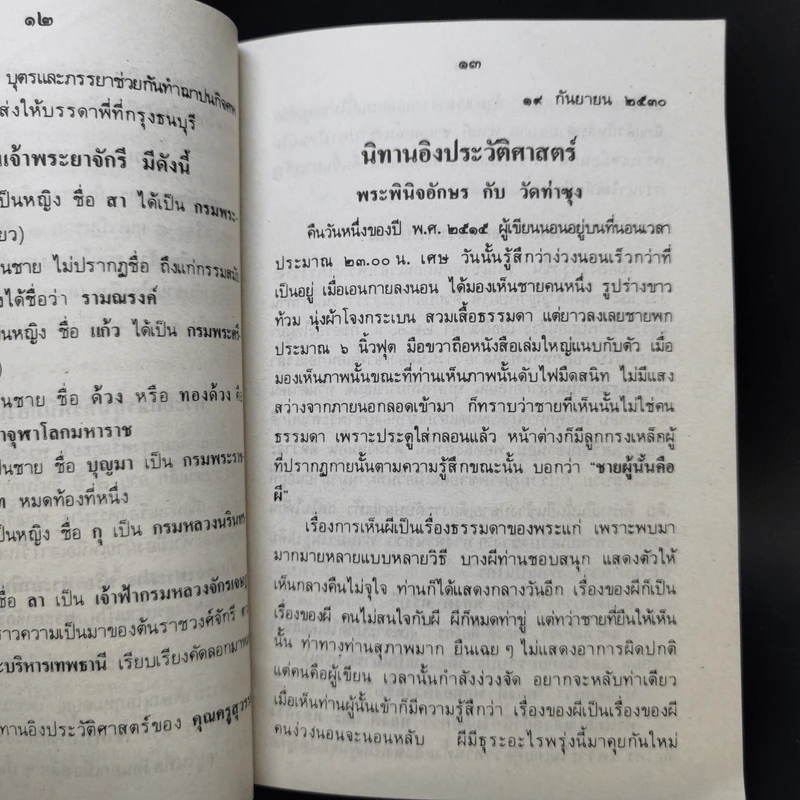 ๑๒
บุตรและภรรยาช่วยกันทำฌาปนกิจศพ
ส่งให้บรรดาพี่ที่กรุงธนบุรี
เจ้าพระยาจักรี มีดังนี้
เป็นหญิง ชื่อ สา ได้เป็น กรมพระ-
ยว)
นชาย ไม่ปรากฏชื่อ ถึงแก่กรรมสมัย
งได้ชื่อว่า รามณรงค์
นหญิง ชื่อ แก้ว ได้เป็น กรมพระศรี-
)
นชาย ชื่อ ด้วง หรือ ทองด้วง คือ
าจุฬาโลกมหาราช
ป็นชาย ชื่อ บุญมา เป็น กรมพระราช-
ท หมดท้องที่หนึ่ง
ป็นหญิง ชื่อ กุ เป็น กรมหลวงนรินทร-
ชื่อ ลา เป็น เจ้าฟ้ากรมหลวงจักรเจษฎา
ราวความเป็นมาของต้นราชวงศ์จักรี
ะบริหารเทพธานี เรียบเรียงคัดลอกมาจาก
ทานอิงประวัติศาสตร์ของ คุณครูสุวรร
๑๓
๑๙ กันยายน ๒๕๓๐
นิทานอิงประวัติศาสตร์
พระพินิจอักษร กับ วัดท่าซุง
คืนวันหนึ่งของปี พ.ศ. ๒๕๑๕ ผู้เขียนนอนอยู่บนที่นอนเวลา
ประมาณ ๒๓.๐๐ น. เศษ วันนั้นรู้สึกว่าง่วงนอนเร็วกว่าที่
เป็นอยู่ เมื่อเอนกายลงนอน ได้มองเห็นชายคนหนึ่ง รูปร่างขาว
ท้วม นุ่งผ้าโจงกระเบน สวมเสื้อธรรมดา แต่ยาวลงเลยชายพก
ประมาณ ๖ นิ้วฟุต มือขวาถือหนังสือเล่มใหญ่แนบกับตัว เมื่อ
มองเห็นภาพนั้นขณะที่ท่านเห็นภาพนั้นดับไฟมืดสนิท ไม่มีแสง
สว่างจากภายนอกลอดเข้ามา ก็ทราบว่าชายที่เห็นนั้นไม่ใช่คน
ธรรมดา เพราะประตูใส่กลอนแล้ว หน้าต่างก็มีลูกกรงเหล็กผู้
ที่ปรากฏกายนั้นตามความรู้สึกขณะนั้น บอกว่า "ชายผู้นั้นคือ
ผี"
เรื่องการเห็นผีเป็นเรื่องธรรมดาของพระแก่ เพราะพบมา
มากมายหลายแบบหลายวิธี บางผีท่านชอบสนุก แสดงตัวให้
เห็นกลางคืนไม่จุใจ ท่านก็ได้แสดงกลางวันอีก เรื่องของผีก็เป็น
เรื่องของผี คนไม่สนใจกับผี ผีก็หมดท่าขู่ แต่ทว่าชายที่ยืนให้เห็น
นั้น ท่าทางท่านสุภาพมาก ยืนเฉย ๆ ไม่แสดงอาการผิดปกติ
แต่คนคือผู้เขียน เวลานั้นกำลังง่วงจัด อยากจะหลับท่าเดียว
เมื่อเห็นท่านผู้นั้นเข้าก็มีความรู้สึกว่า เรื่องของผีเป็นเรื่องของผี
คนง่วงนอนจะนอนหลับ ผีมีธุระอะไรพรุ่งนี้มาคุยกันใหม่